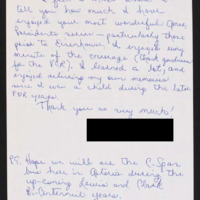 tell you how much I have
enjoyed your most wonderful
Presidents series — particularly those
prior to Eisenhower. I enjoyed every
minute of the coverage (thank goodness
for the VCR), I learned a lot, and
enjoyed reliving my own memories
since I was a child during the later
FDR years.
Thank you so very much!
P.S. Hope we will see the C-Span
bus here in Astoria during the
up-coming Lewis and Clark
Bi-Centennial years.